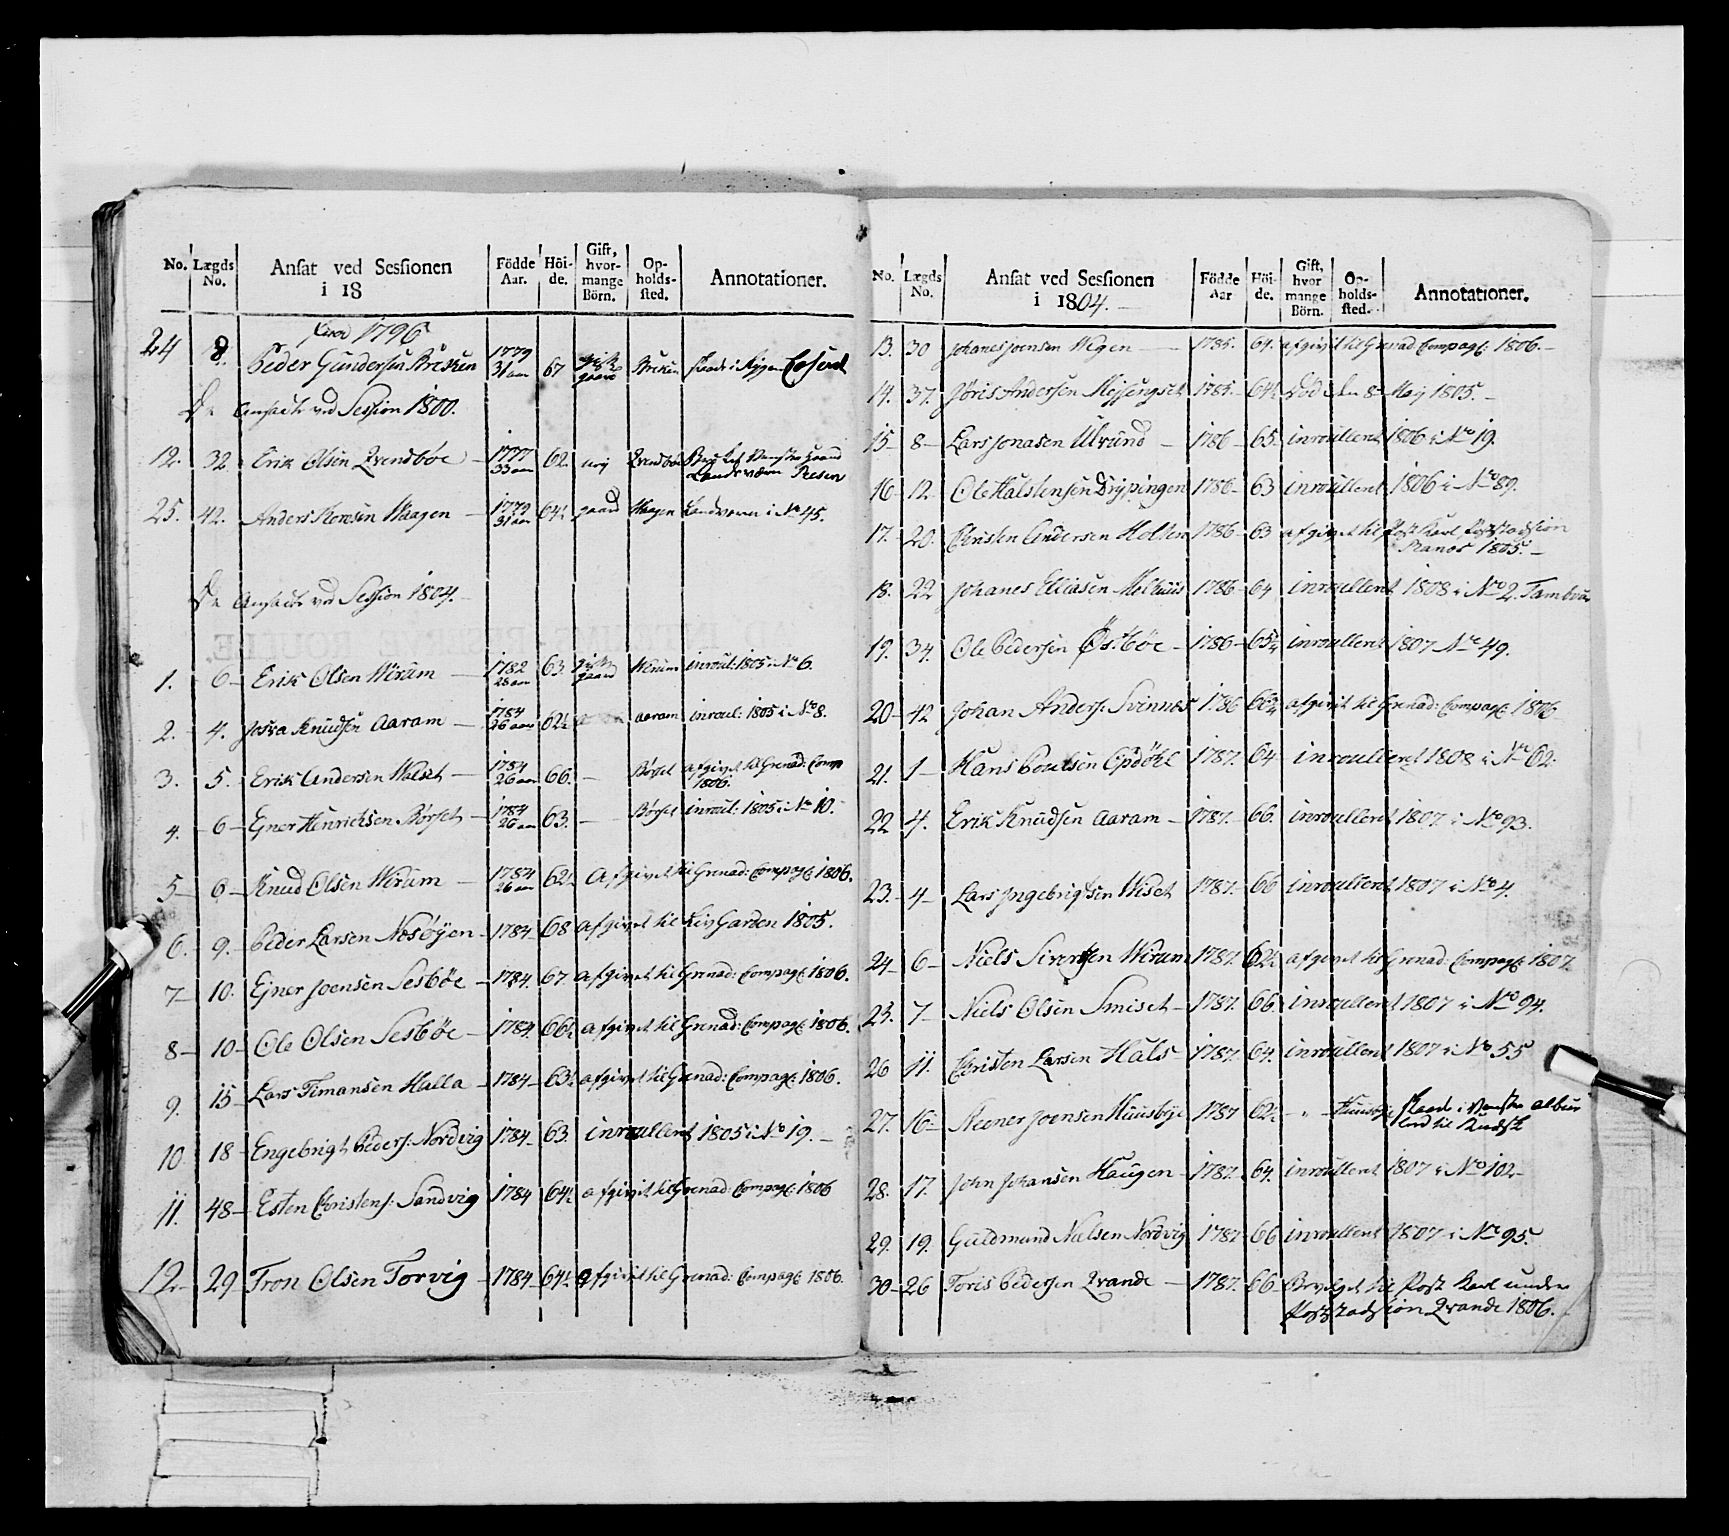 No. Lægds No. Ansat ved Sessionen i 18 Födde Aar. Höide. Gift, hvormange Börn. Opholdssted. Annotationer.
1796
24 8. Peder Gundersen 1779 31 aar 67
De Ansadte ved Session 1800.
12. 32 Erik Olsen 1777 33 aar 62. Landeværn
25. 42. Anders Waagen 1779 31 aar 64½ Waagen Landværn i No 45.
De Ansadte ved Session 1804.
1. 6 Erik Olsen Wirum 1782 28 aar 63. Wirum inroul: 1805 i No 6.
2. 4. Josva Knudsen Aaram 1784 26 aar 62½ Aaram inroul: 1805 i No 8.
3. 5. Erik Andersen Walset 1784 26 aar 66. Børset afgivet til Grenad: Comp 1806.
4. 6 Ejner Henrichsen Børset 1784 26 aar 63. Børset inroul: 1805 i No 10.
5 6 Knud Olsen Wirum 1784 26 aar 62½ afgivet til Grenad: Compagt: 1806.
6. 9. Peder Larsen Nesøyen 1784 68 afgivet til LivGarden 1805.
7 10. Ejner Joensen Sesbøe 1784. 67 afgivet til Grenad: Compagt: 1806.
8 10 Ole Olsen Sesbøe 1784. 66½ afgivet til Grenad: Compagt: 1806.
9. 15 Lars Timansen Halla 1784 63½ afgivet til Grenad: Compagt: 1806.
10 18 Engebrigt Peders: Nordvig 1784 63. inroullert 1805 i No 19.
11. 48 Esten Christens: Sandvig 1784 64½ afgivet til Grenad: Compagt: 1806
12. 29 Tron Olsen Torvig 1784 64½ afgivet til Grenad: Compagt: 1806.
No. Lægds No. Ansat ved Sessionen i 1804. Födde Aar Höide. Gift, hvor mange Börn. Opholdssted. Annotationer.
13. 30 Johanes Joensen Wegen 1785. 64. afgivet til Grenad Compagt: 1806.
14. 37. Jøris Andersen 1785. 64½ død den 8 May 1805.
15 8 Lars Jonasen Ulvund 1786 65. inroullert 1806 i No 19.
16 12 Ole Halstensen 1786 63 inroullert 1806 i No 89.
17. 20. Christen Andersen Holten 1786 63 afgivet til Post Karl
1805.
18. 22 Johanes Eliasen Melhuus 1786 64 inroullert 1808 i No 2. Tambour
19. 34. Ole Pedersen Østbøe 1786 65¼ inroullert 1807 No 49.
20 42 Johan Anders: Svinnes 1786 66¾ afgivet til Grenad: Compagt: 1806
21. 1 Hans Poulsen Opdøhl 1787. 64 inroullert 1808 i No 62.
22 4. Erik Knudsen Aaram 1787. 66. inroullert 1807 i No 93.
23. 4 Lars Ingebrigtsen Wiset 1787. 66 inroullert 1807 i No 4.
24 6 Niels Sivertsen Wirum 1787. 62½ afgivet til Grenad: Compagt: 1807.
25. 7 Niels Olsen Smiset 1787. 66. inroullert 1807 i No 94.
26 11. Christen Larsen Hals 1787. 64. inroullert 1807 i No 55
27. 16 Joensen Huusbye 1787 62½ Huusbye
28. 17. John Johansen Haugen 1787. 64. inroullert 1807 i No 102
29. 19. Guldmund Nielsen Nordvig 1787 66 inroullert 1807 i No 95.
30 26 Toris Pedersen Qvande 1787. 66 Bevilget til Post Karl under
Qvande 1806.